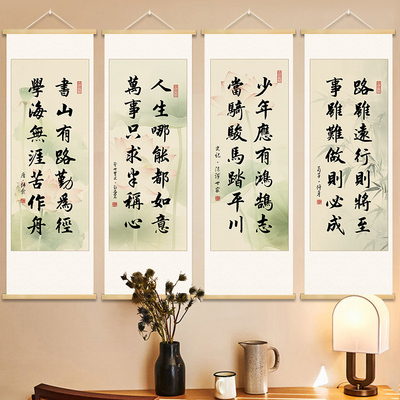 書山有路勤為徑
學海無涯苦作舟
唐·韓愈
人生哪能都如意
萬事只求半稱心
少年應有鴻鵠志
當騎駿馬踏平川
史記·陳涉世家
路雖遠行則將至
事雖難做則必成
荀子·修身